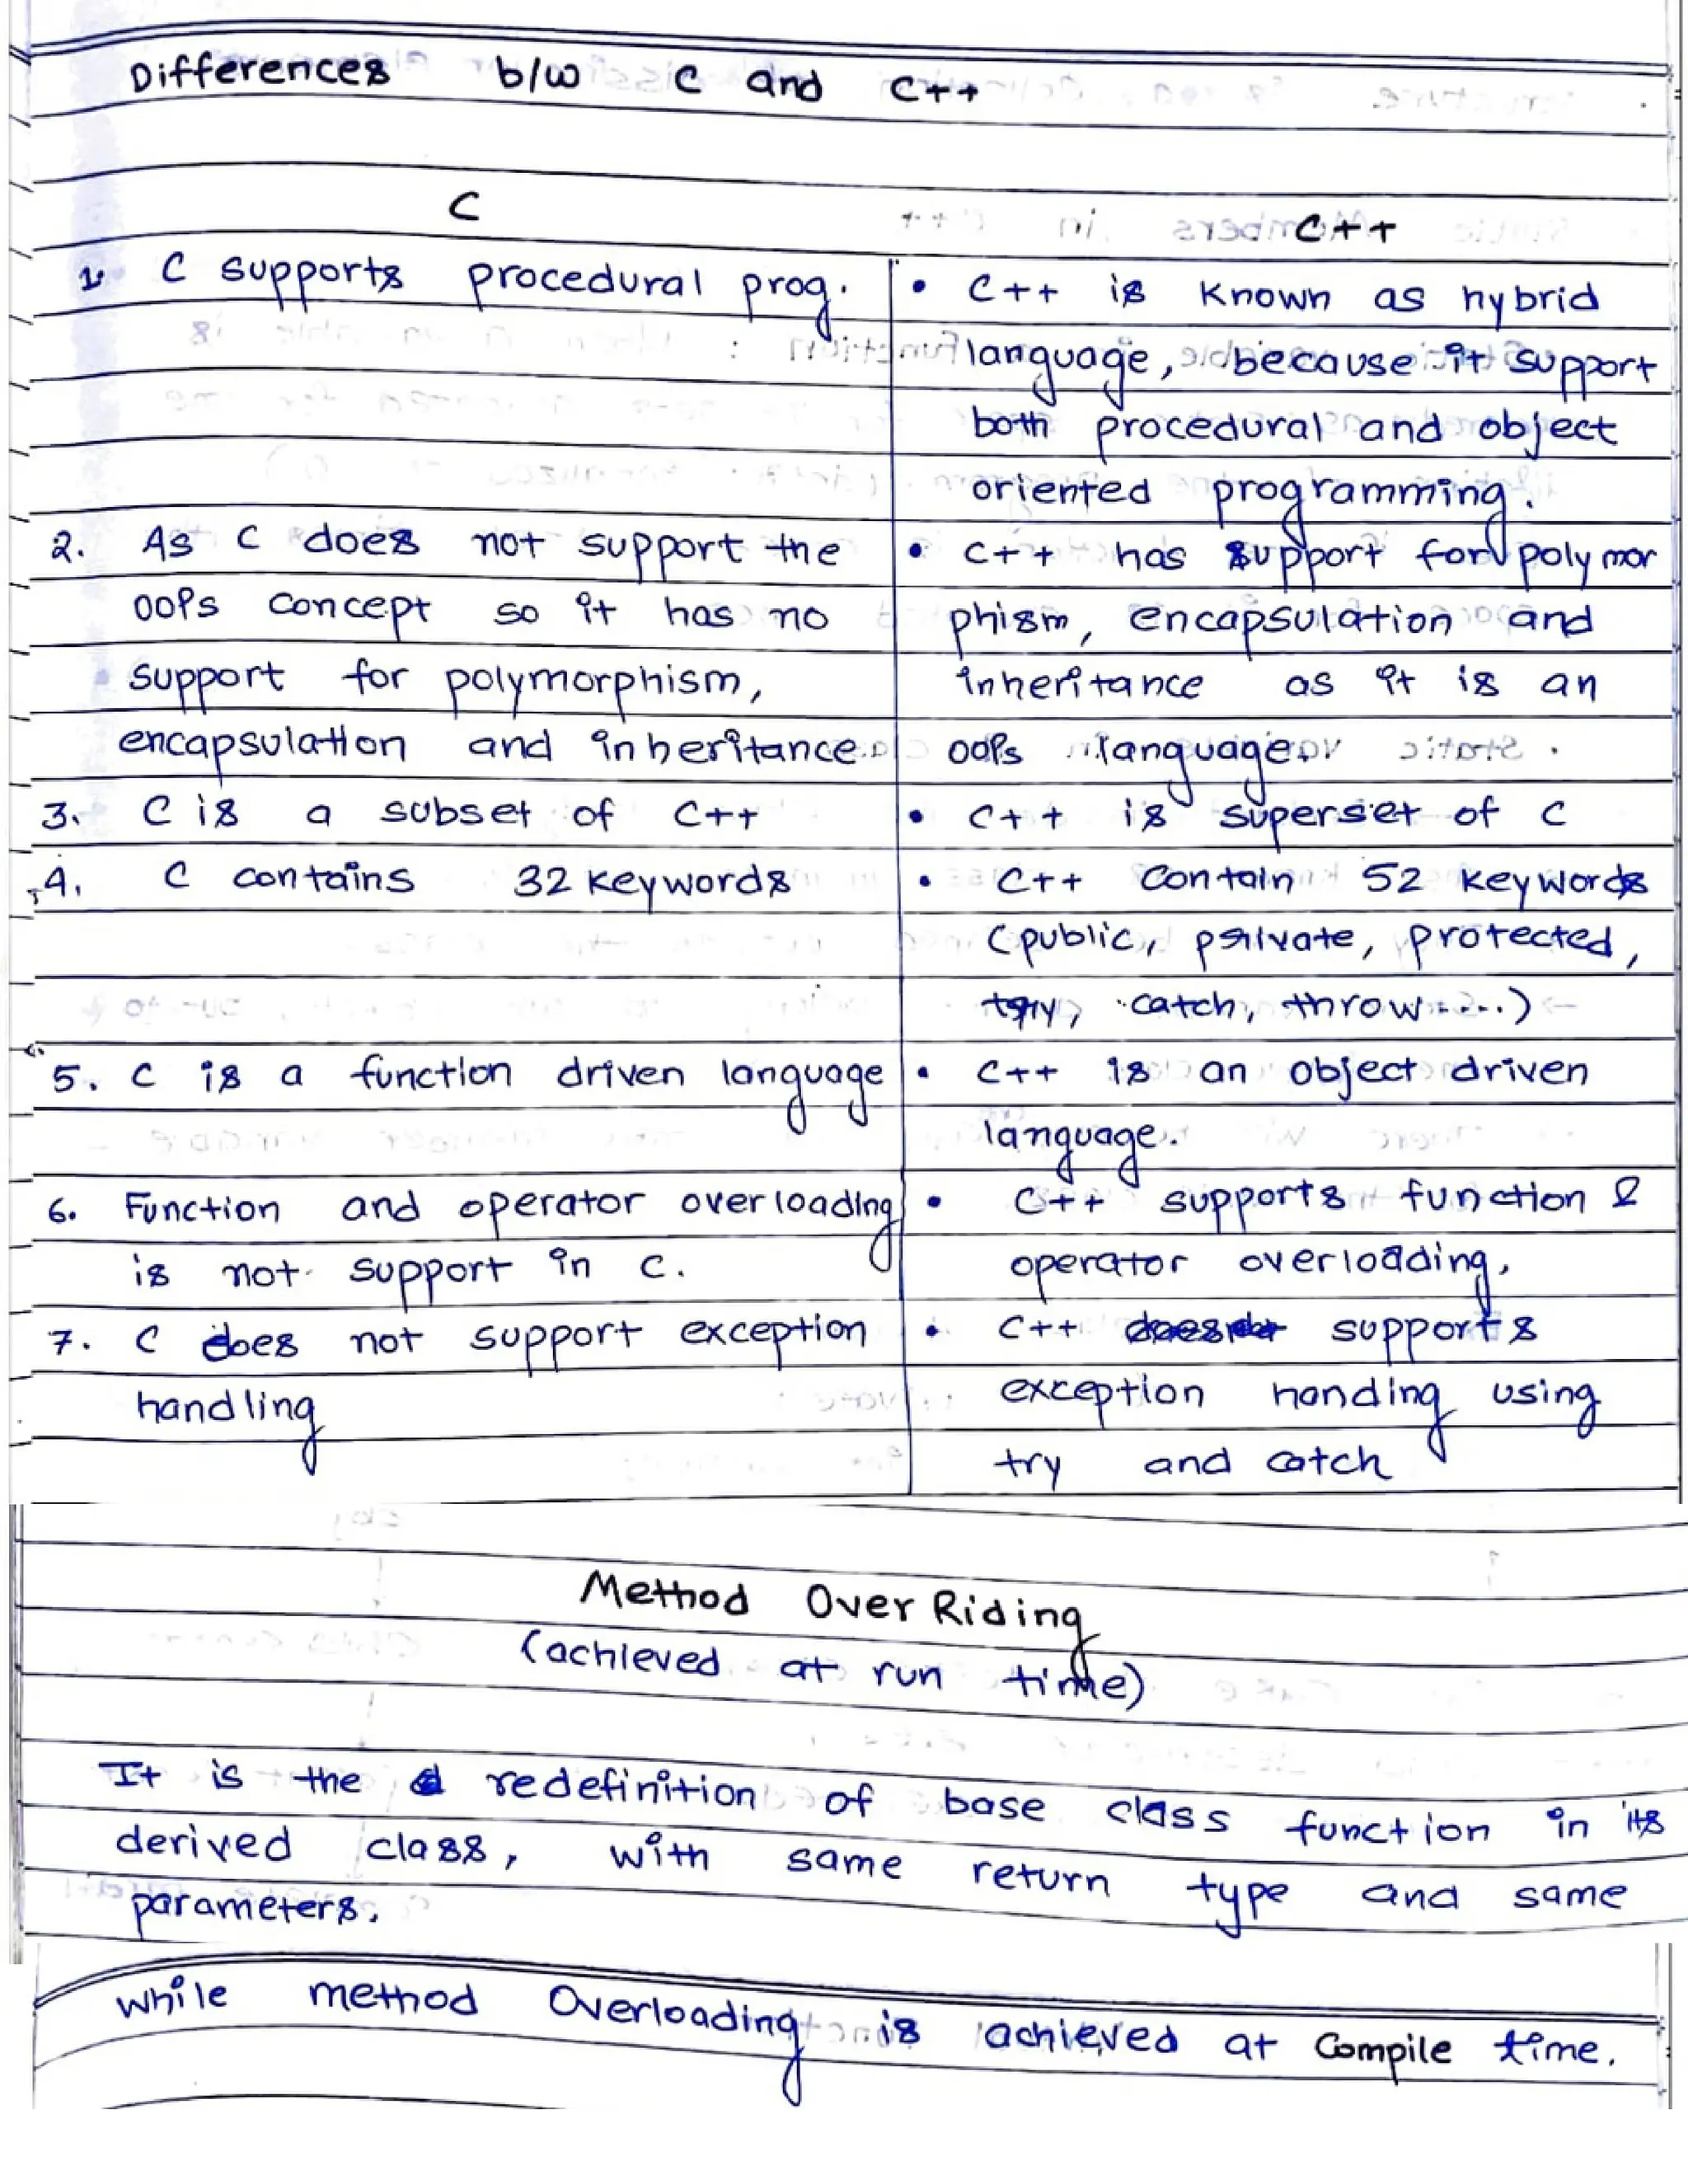 Differences b/w C and C++
C
C++
1. C supports procedural prog.
• C++ is known as hybrid
language, because it support
both procedural and object
oriented programming.
2. As C does not support the
OOPs concept so it has no
support for polymorphism,
encapsulation and inheritance.
• C++ has support for polymor
phism, encapsulation and
inheritance as it is an
OOPs language.
3. C is a subset of C++
• C++ is superset of C
4. C contains 32 keywords
• C++ contain 52 keywords
(public, private, protected,
try, catch, throw.....)
5. C is a function driven language
• C++ is an object driven
language.
6. Function and operator overloading
is not support in C.
• C++ supports function &
operator overloading.
7. C does not support exception
handling
• C++ supports
exception handing using
try and catch
Method OverRiding
(achieved at run time)
It is the redefinition of base class function in its
derived class, with same return type and same
parameters.
While method Overloading is achieved at Compile time.